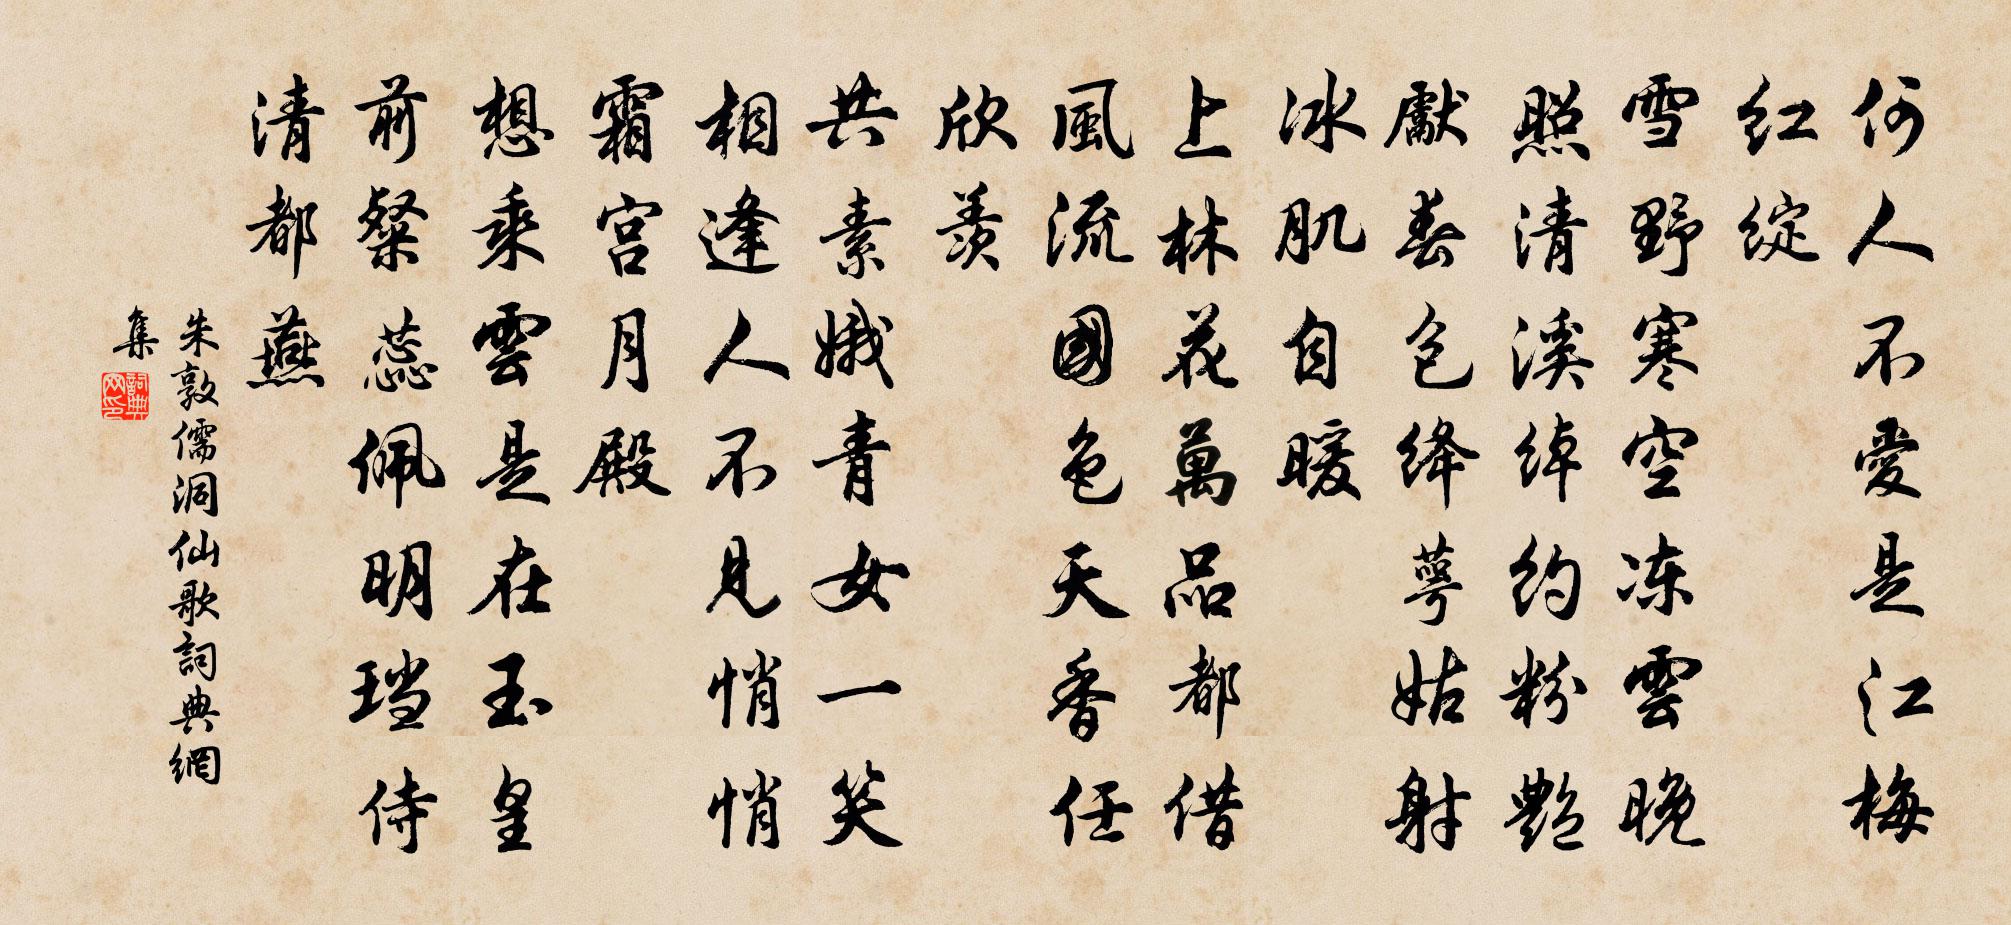 何人不愛是江梅
红绽
雪野寒空冻雲晚
照清溪绰约粉艷
獻春色绛萼姑射
冰肌自暖
上林花萬品都借
風流國色天香任
欣羡
共素娥青女一笑
相逢人不見悄悄
霜宫月殿
想乘雲是在玉皇
前粲蕊佩明珰侍
清都燕
朱敦儒洞仙歌詞典網
集
詞典网印